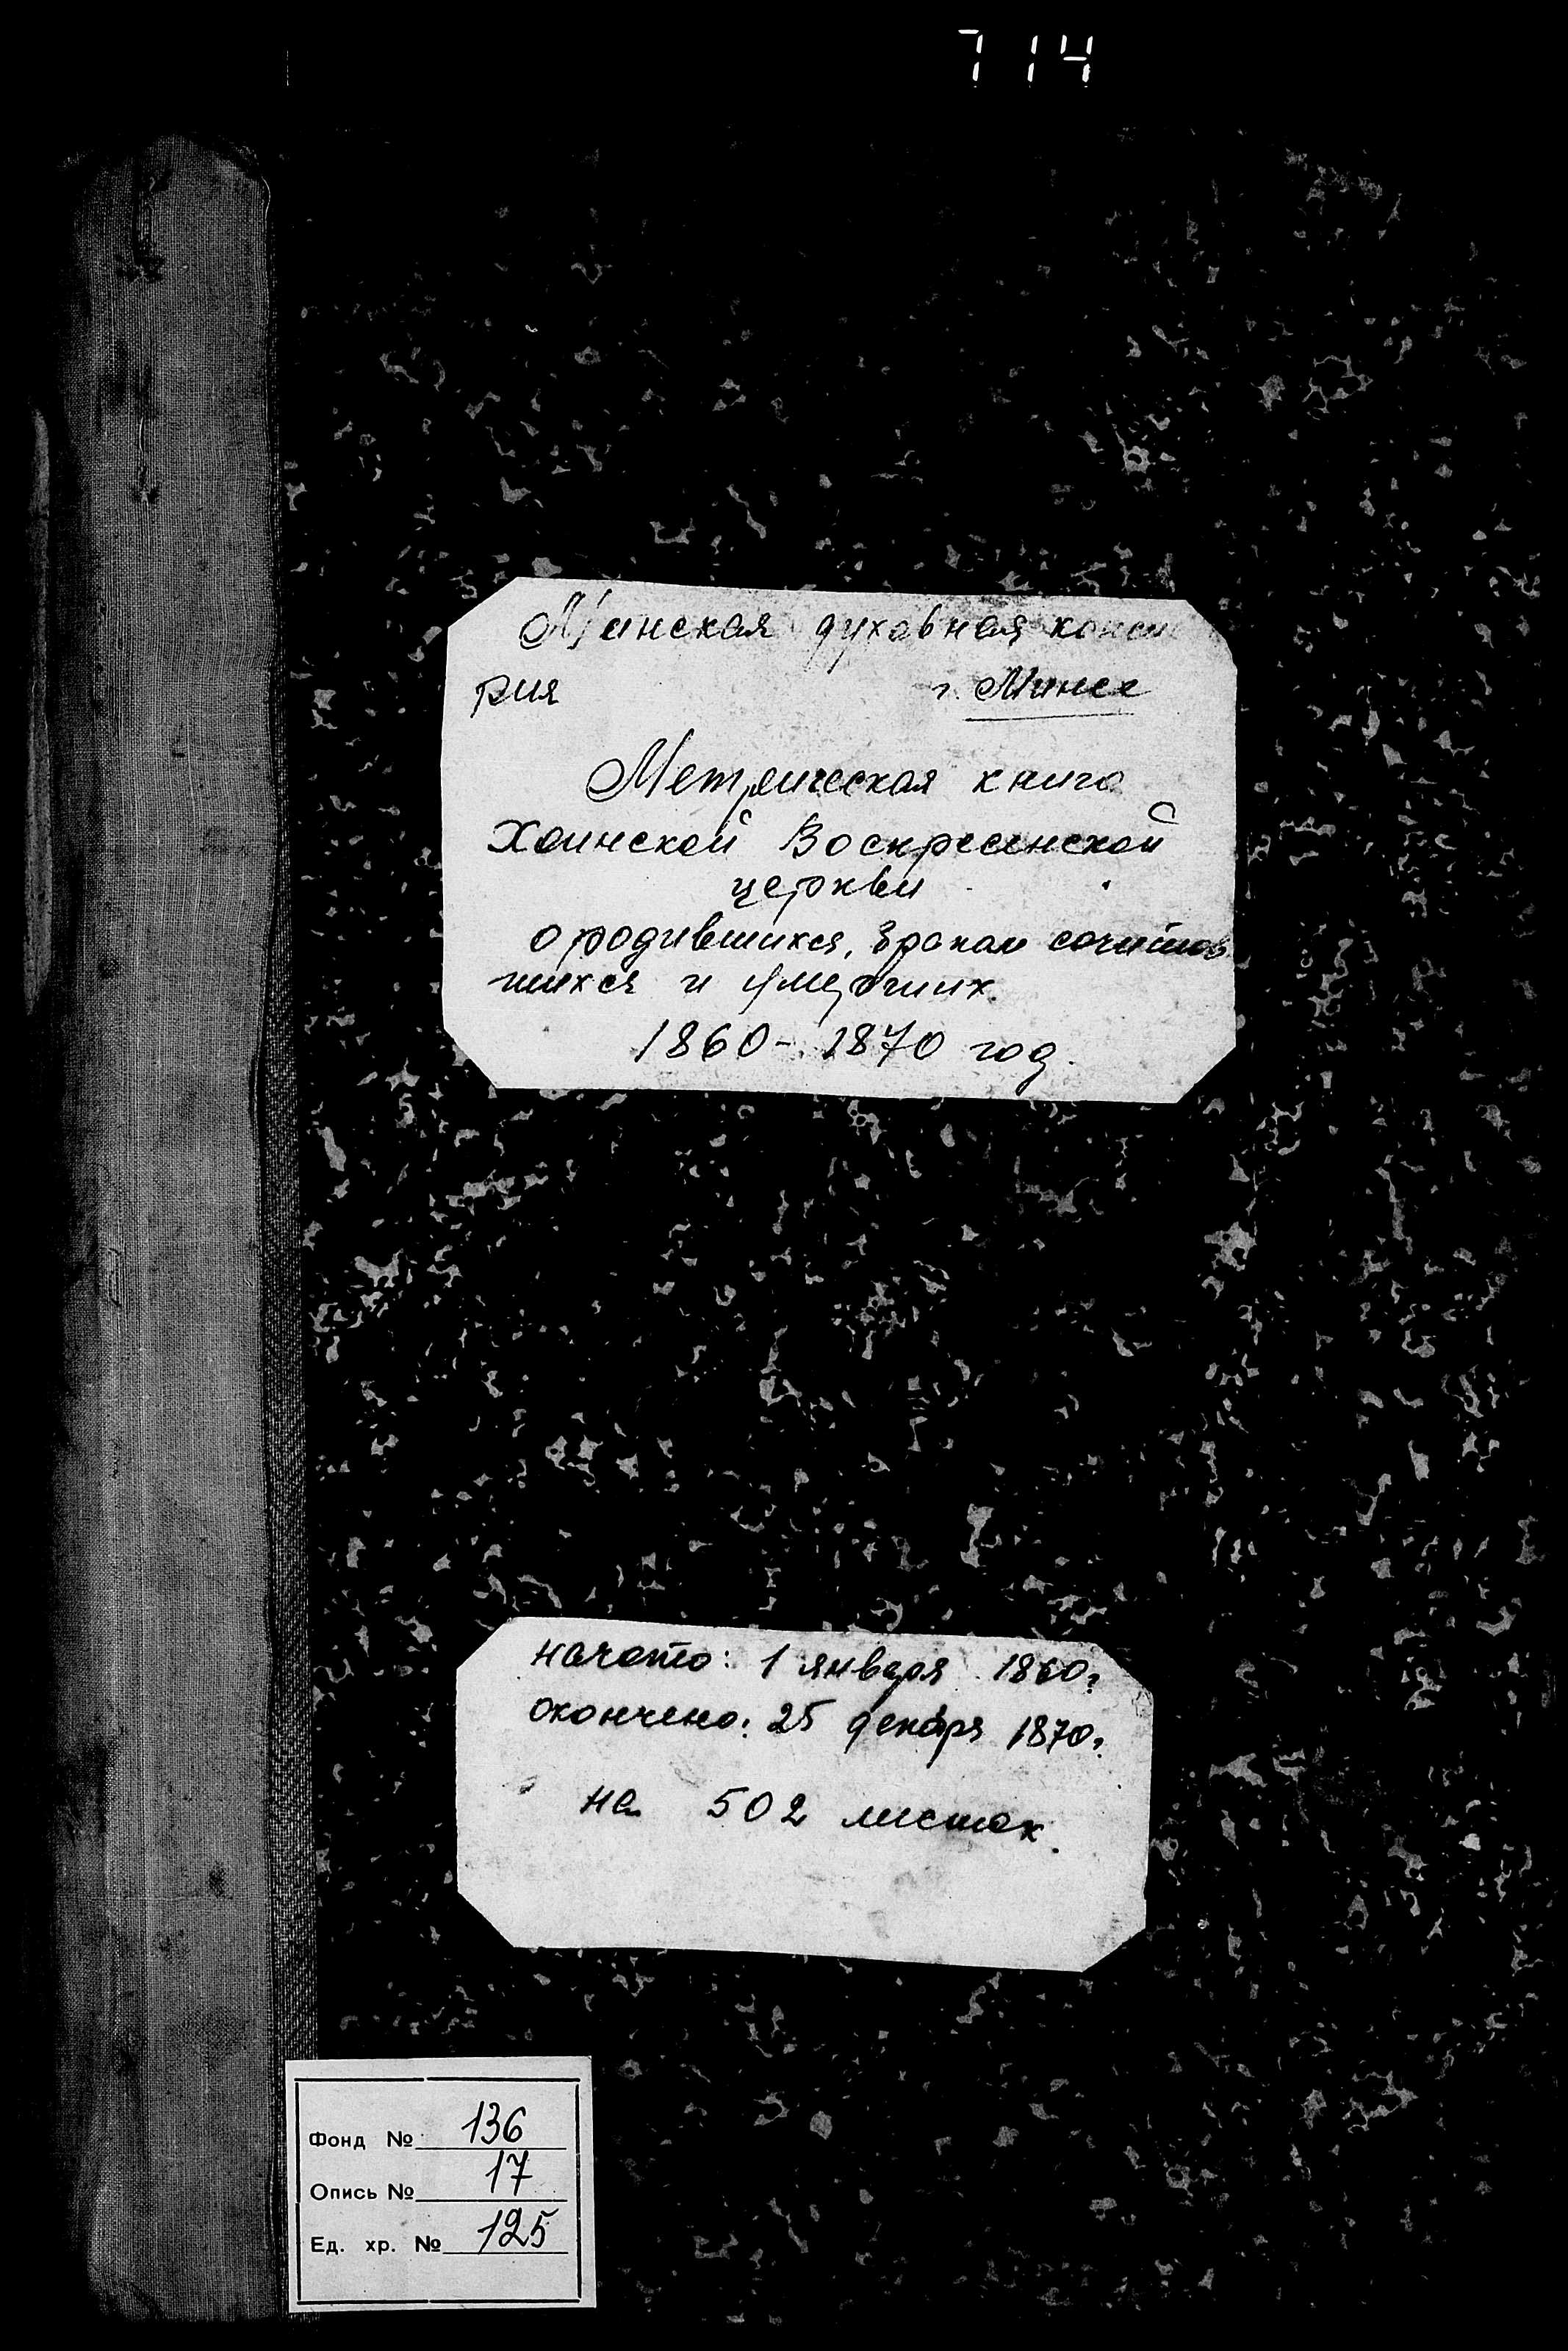 714
Минская духовная конси
рия г. Минск
Метрическая книга
Хоинской Воскресенской
церкви
о родившихся, браком сочетав
шихся и умерших.
1860-1870 год.
начато: 1 января 1860г
окончено: 25 декабря 1870г.
на 502 листах.
Фонд № 136
Опись № 17
Ед. хр. № 125